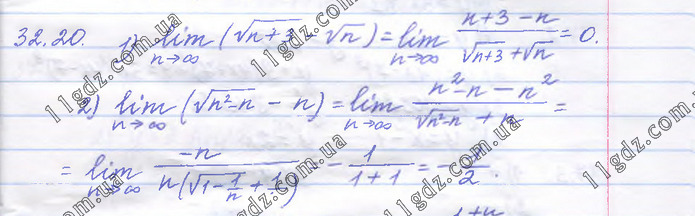 32.20. 1) lim n→∞ (√n+3 - √n) = lim n→∞ n+3-n / √n+3 + √n = 0.
2) lim n→∞ (√n²-n - n) = lim n→∞ n²-n-n² / √n²-n + n =
= lim n→∞ -n / n(√1-1/n + 1) = - 1 / 1+1 = - 1/2.
1+n
11gdz.com.ua
11gdz.com.ua
11gdz.com.ua
11gdz.com.ua
11gdz.com.ua
11gdz.com.ua